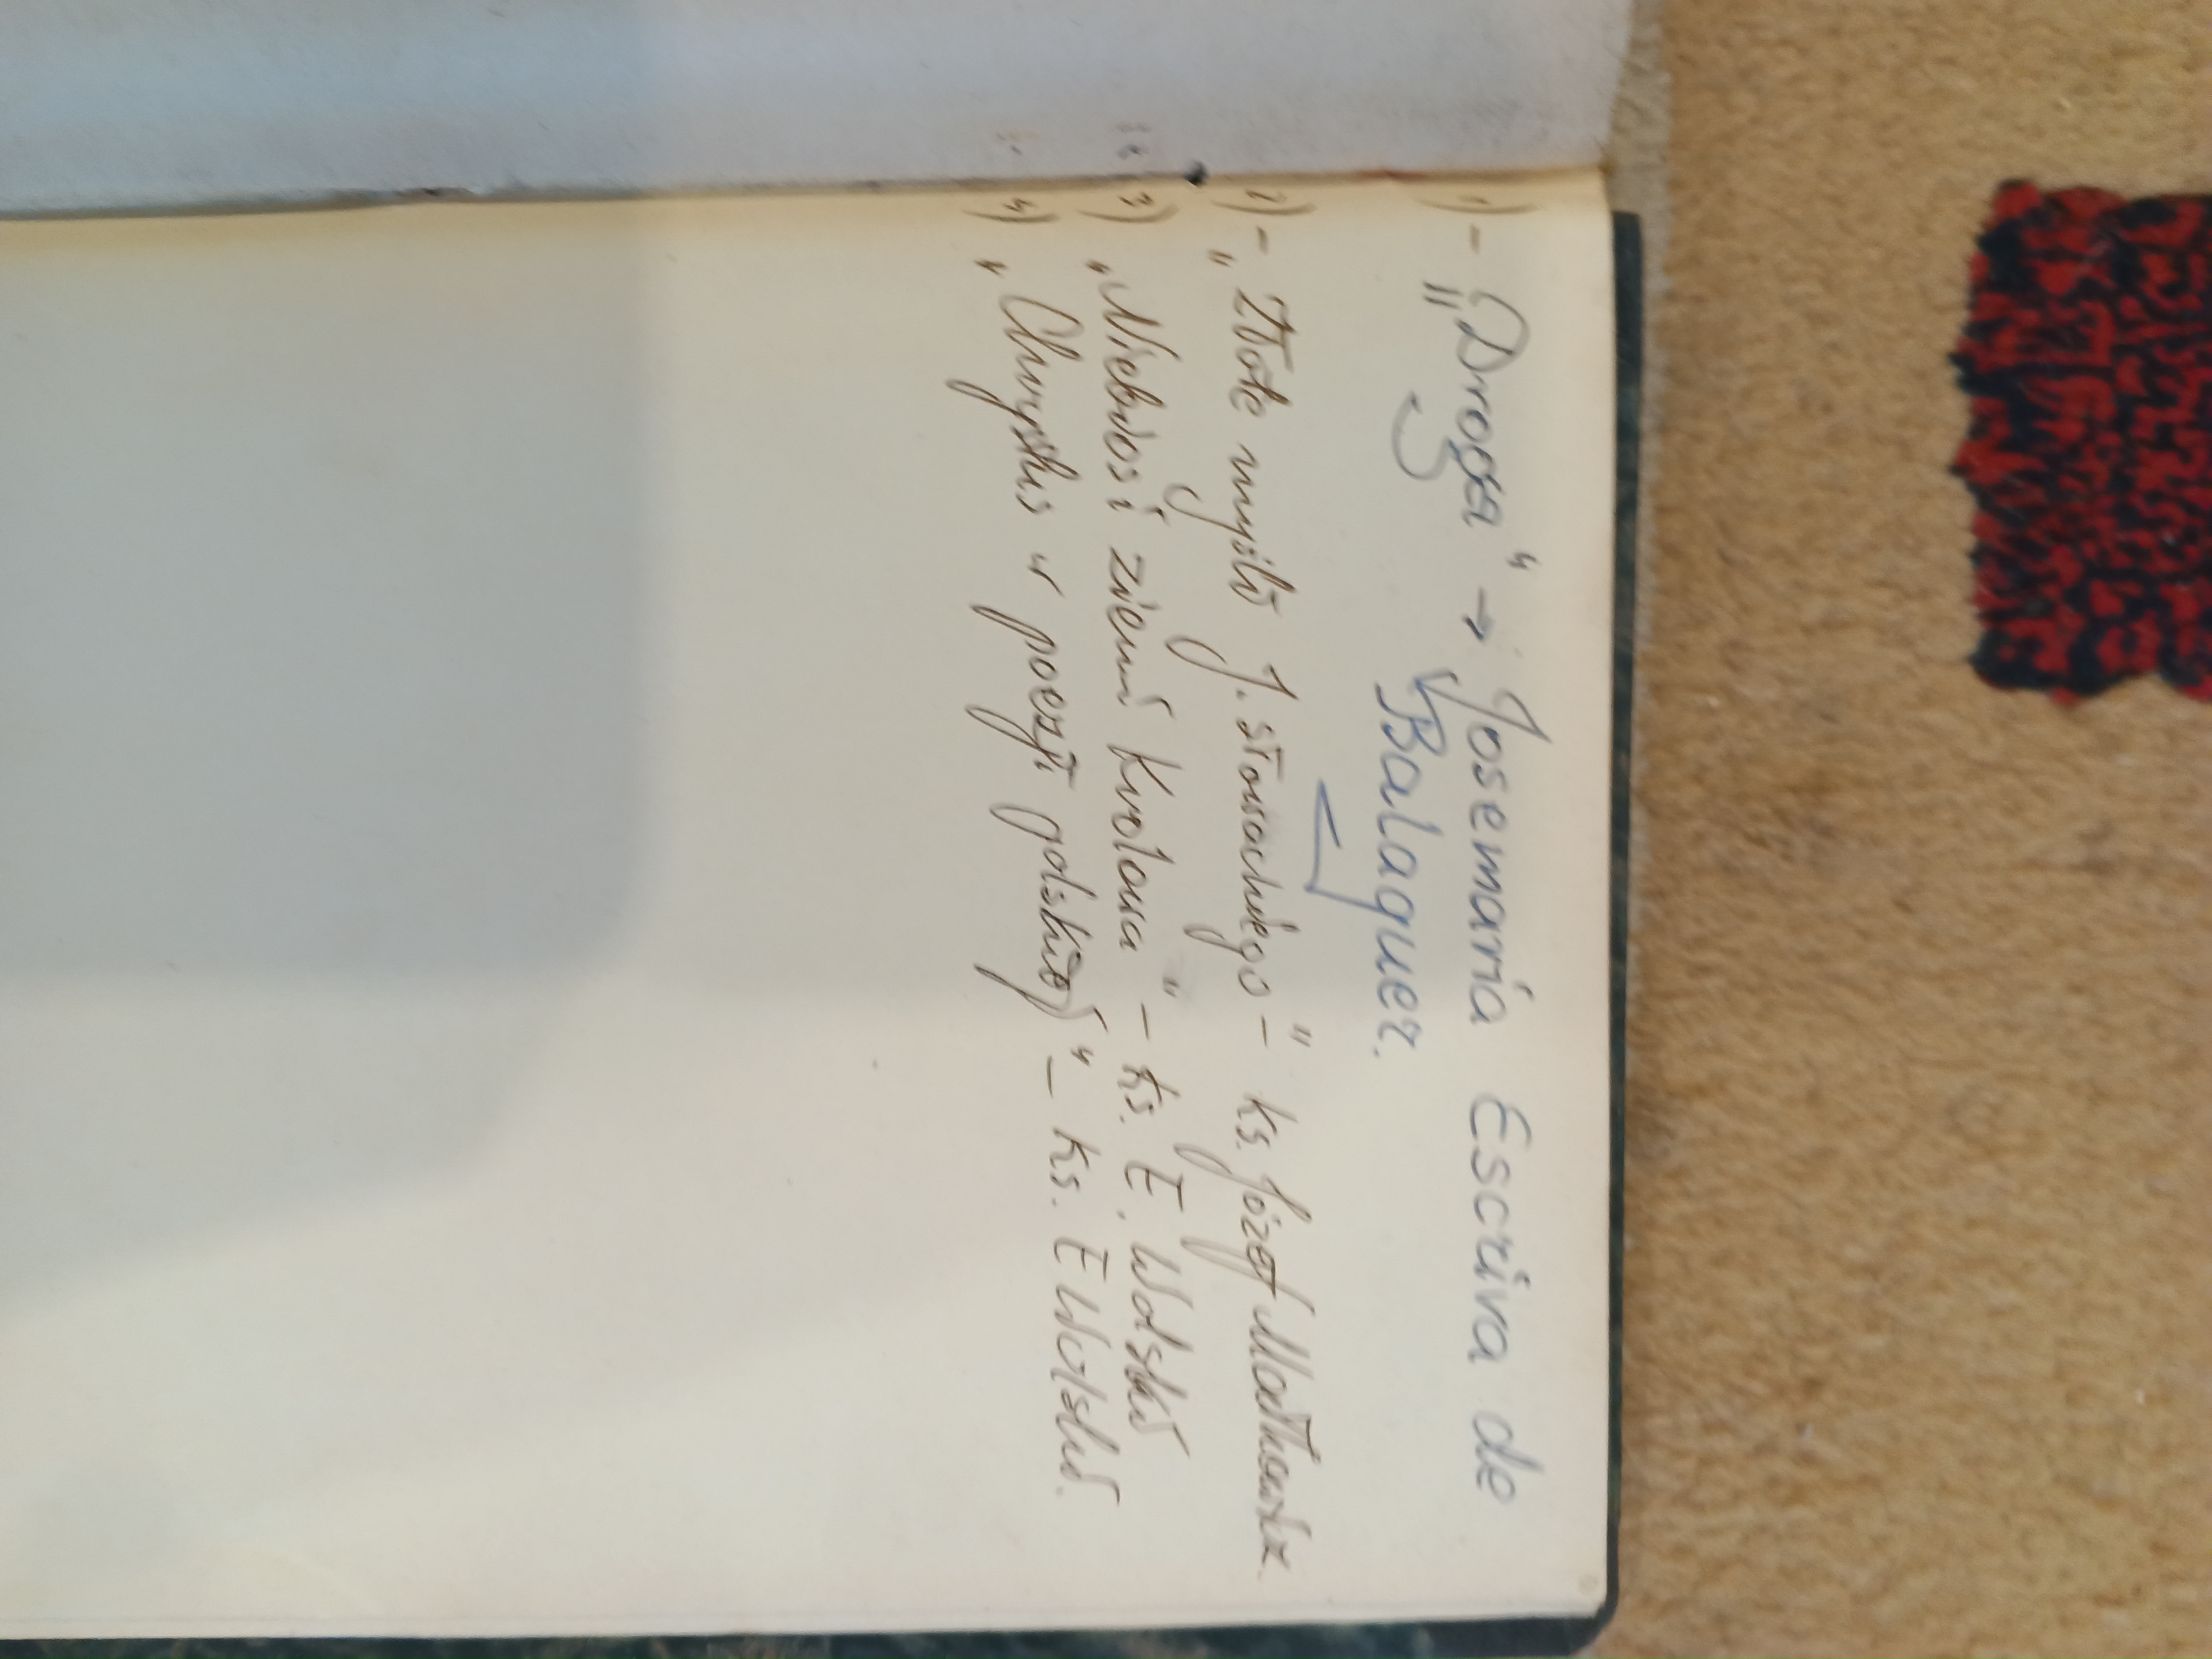 1) - „Droga" → Josemaria Escriva de
Balaguer.
2) - „Złote myśli J. Słowackiego" - ks. Józef
3) „Niebu i ziemi Królowa" - ks. E. Wolski
4) „Chrystus w poezji polskiej" - ks. E Wolski.